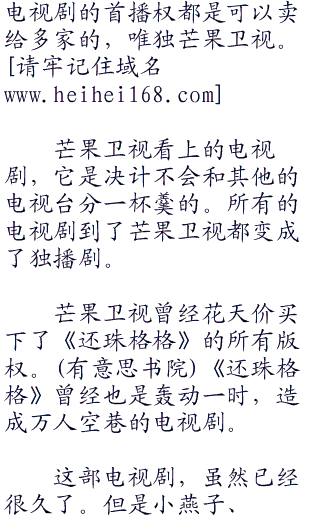 电视剧的首播权都是可以卖
给多家的，唯独芒果卫视。
[请牢记住域名
www.heihei168.com]
芒果卫视看上的电视
剧，它是决计不会和其他的
电视台分一杯羹的。所有的
电视剧到了芒果卫视都变成
了独播剧。
芒果卫视曾经花天价买
下了《还珠格格》的所有版
权。(有意思书院)《还珠格
格》曾经也是轰动一时，造
成万人空巷的电视剧。
这部电视剧，虽然已经
很久了。但是小燕子、